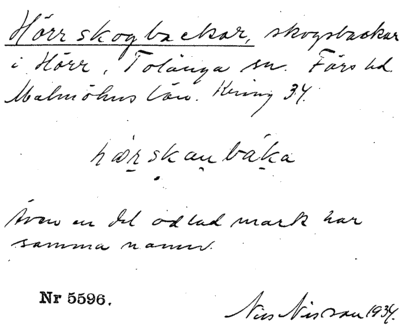 Hörrskogbackar, skogsbackar
i Hörr, Tolånga sn. Färs hd
Malmöhus län. Kering 34.
hærskaubáka
Även en del odlad mark har
samma namn.
Nr 5596.
Nils Nilsson 1934.